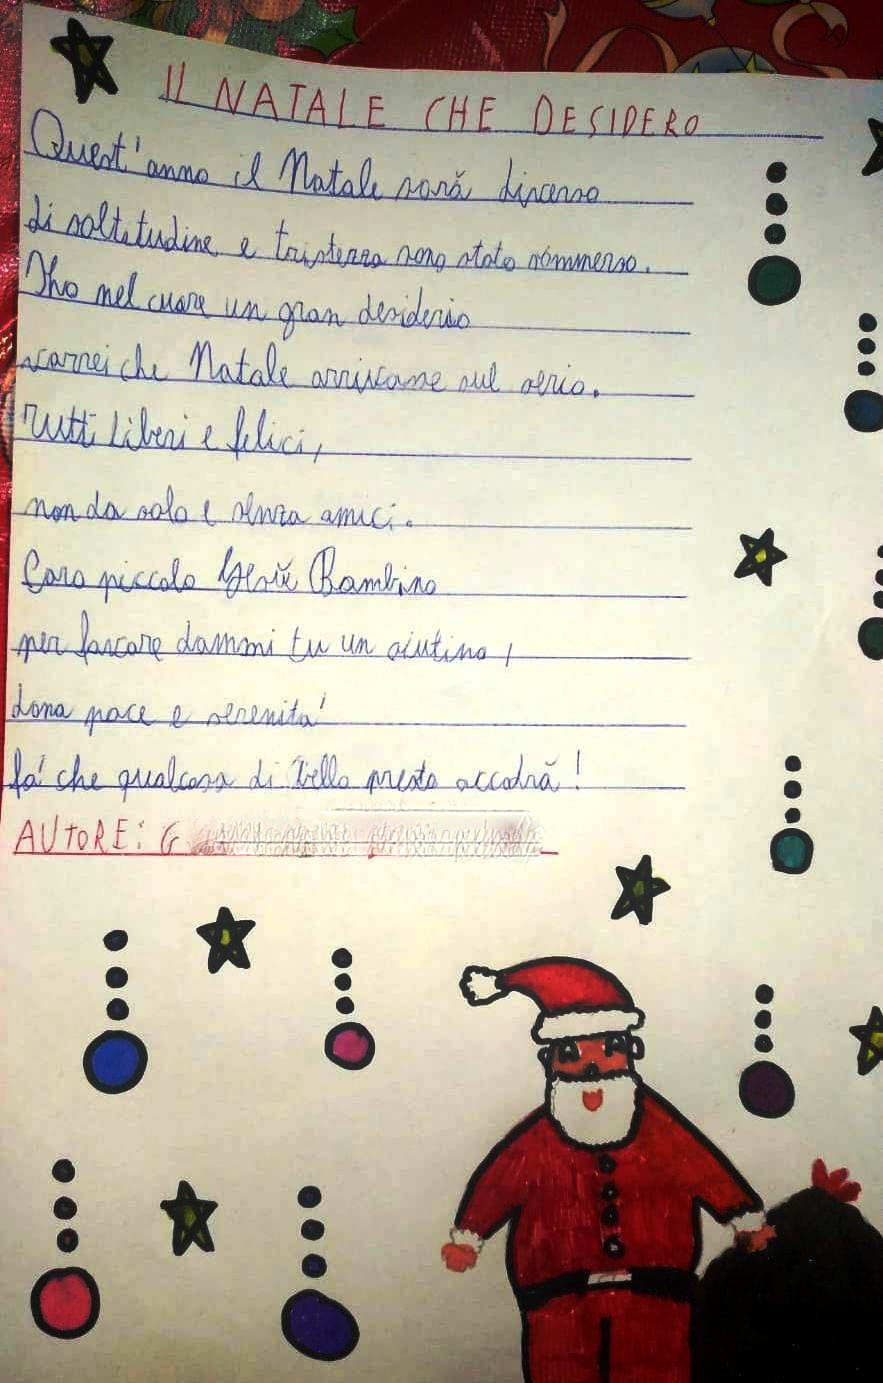 IL NATALE CHE DESIDERO
Quest'anno il Natale sará diverso
di soltitudine e tristezza sono stato sommerso.
Iho nel cuore un gran desiderio
vorrei che Natale arrivasse sul serio.
Tutti liberi e felici,
non da solo e senza amici.
Caro piccolo Gesŭ Bambino
per favore dammi tu un aiutino,
dona pace e serenita'
fa' che qualcosa di bello presto accadră!
AUTORE: G